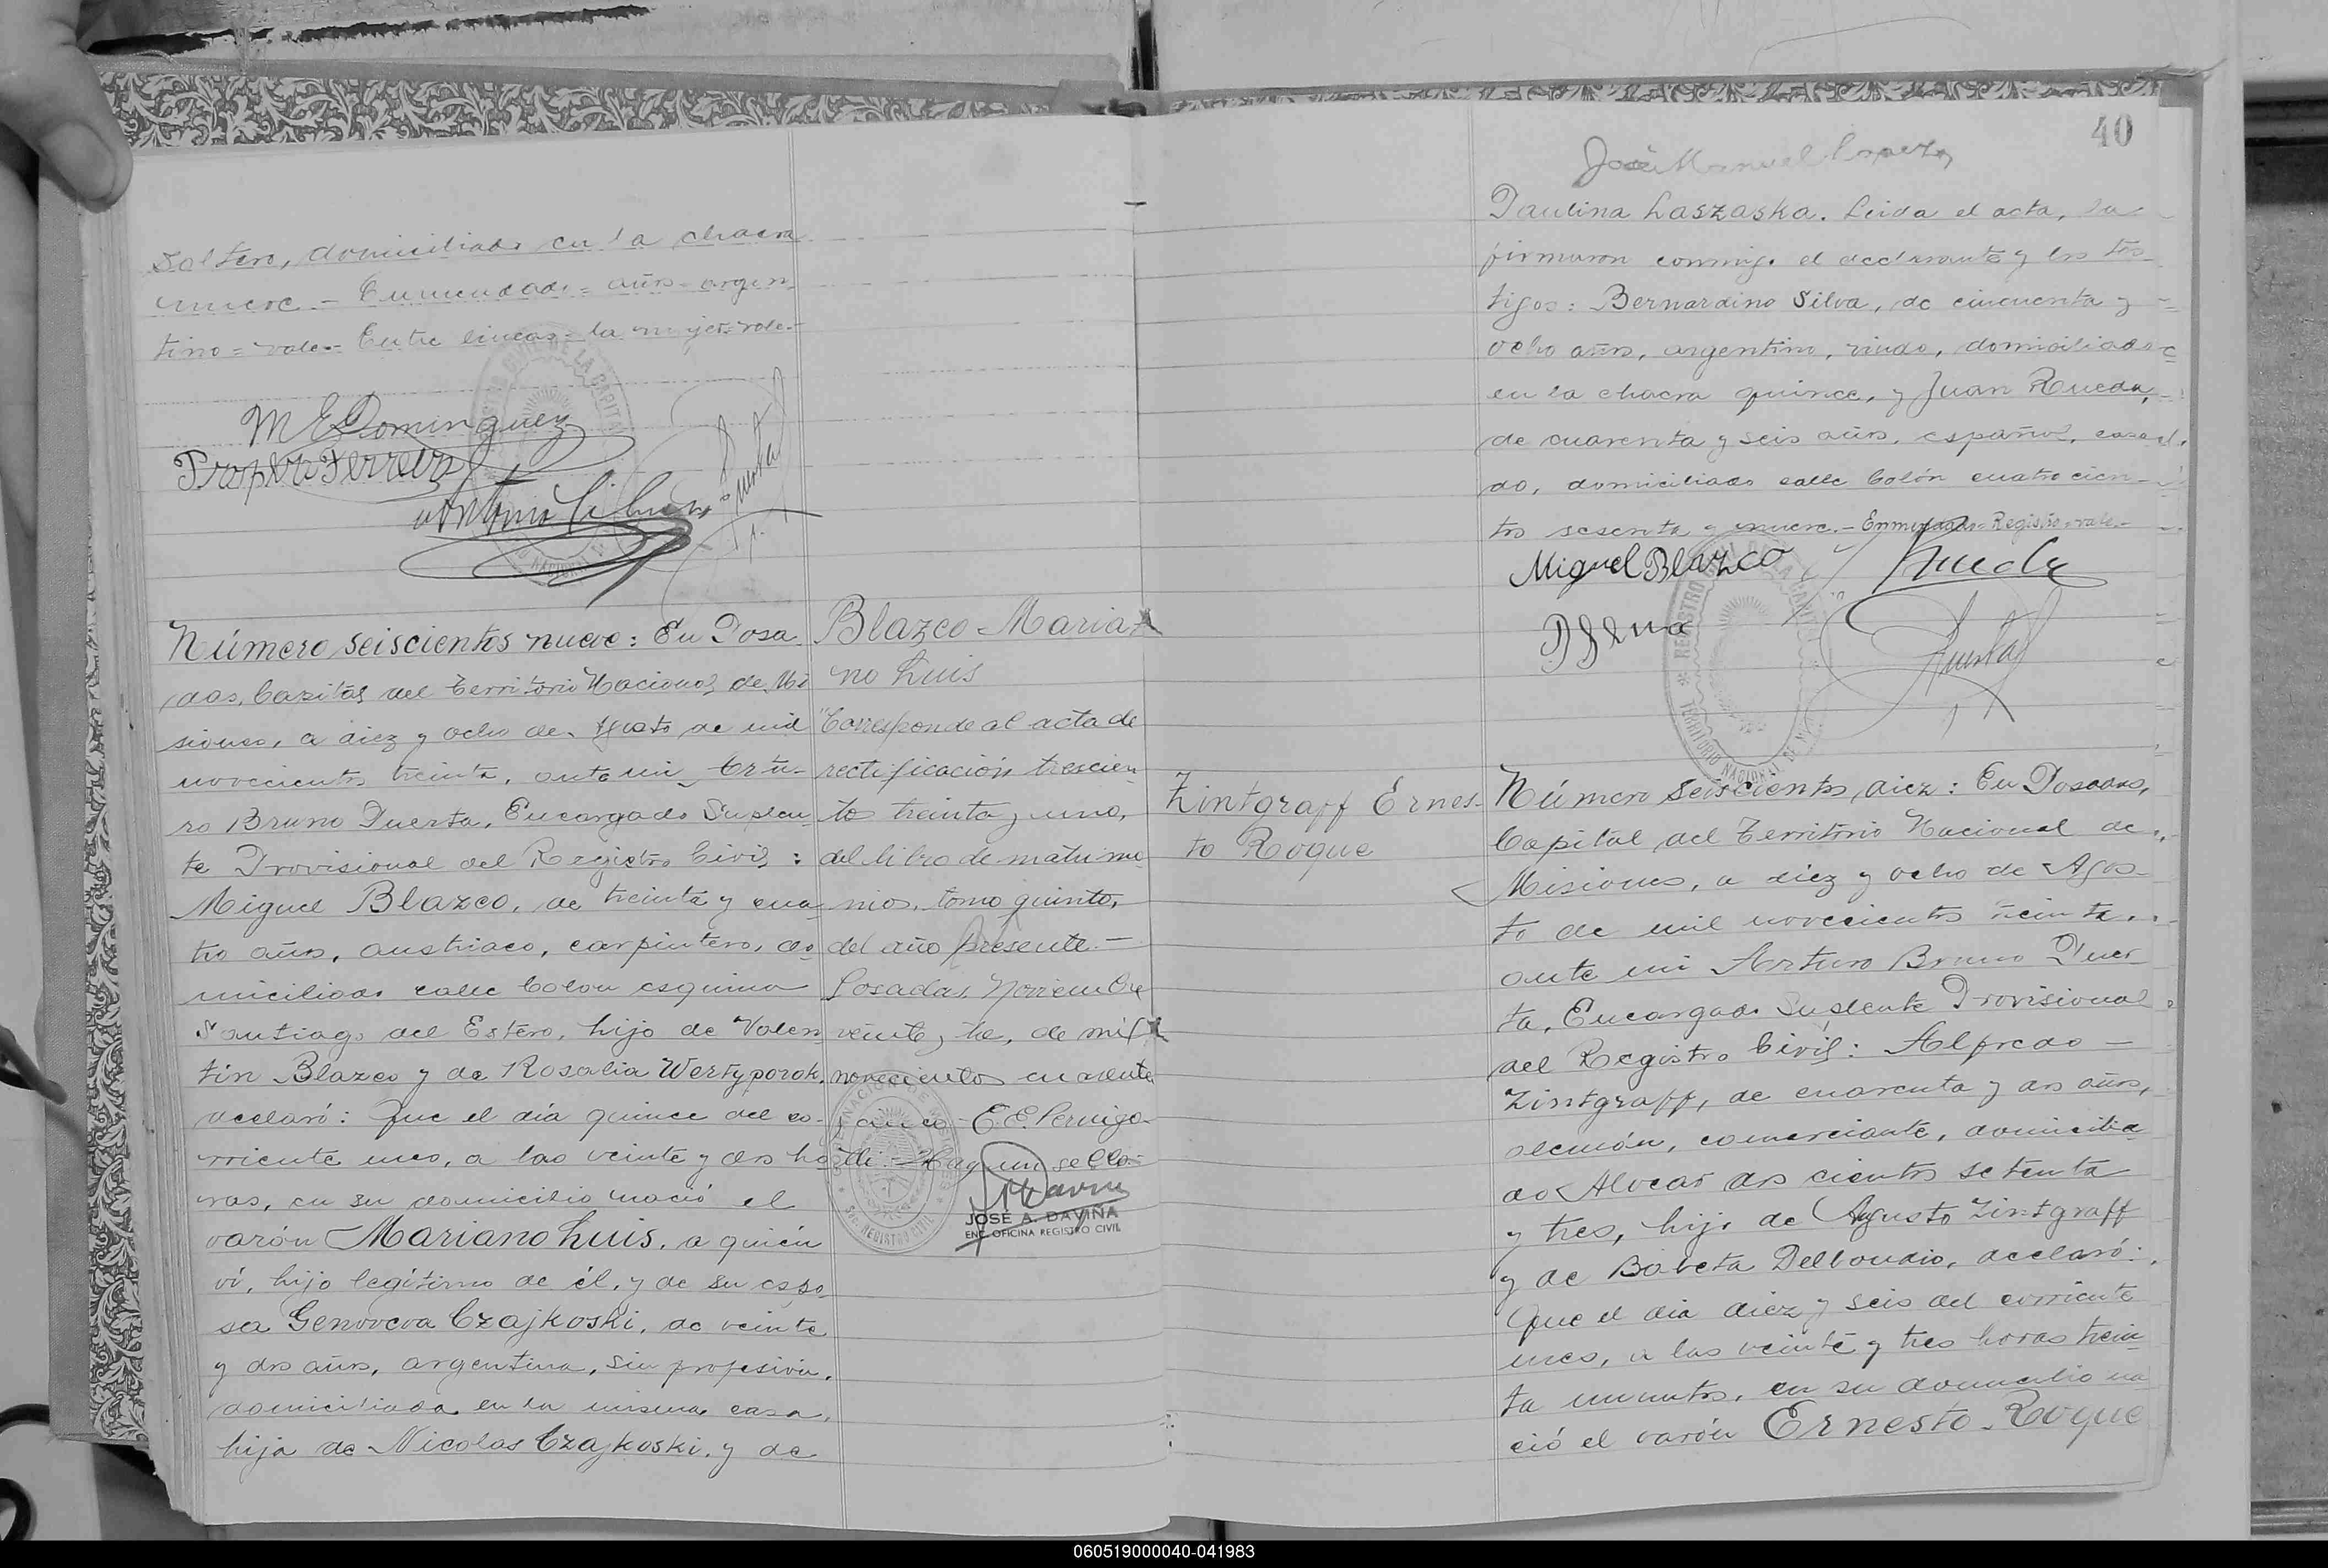 soltero, domiciliado en la chacra
nueve - Enmendado = años - argen
tino = vale = Entre lineas = la mujer = vale -
M E Dominguez
Antonio
Número seiscientos nueve: En Posa
das, Capital del Territorio Nacional de Mi
siones, a diez y ocho de Agosto de mil
novecientos treinta, ante mi, Artu-
ro Bruno Puerta, Encargado Suplen
te Provisional del Registro Civil:
Miguel Blazco, de treinta y cua
tro años, austriaco, carpintero, do
miciliado calle Colon esquina
Santiago del Estero, hijo de Valen
tin Blazco y de Rosalia Wertyporok,
declaró: Que el día quince del co-
rriente mes, a las veinte y dos ho
ras, en su domicilio nació el
varón Mariano Luis, a quién
ví, hijo legítimo de él, y de su espo
sa Genoveva Czajkoski, de veinte
y dos años, argentina, sin profesión,
domiciliada en la misma casa,
hija de Nicolas Czajkoski, y de
Blazco - Maria
no Luis
"Corresponde al acta de
rectificación trescien
tos treinta y uno,
del libro de matrimo
nios, tomo quinto,
del año presente. -
Posadas, Noviembre
veinte y tre, de mil
novecientos cuarenta
y cinco - E. E. Pernigo
tti. - Hay un sello. -
JOSÉ A. DAVIÑA
ENC. OFICINA REGISTRO CIVIL
40
José Manuel Lopez
Paulina Laszaska. Leida el acta, la
firmaron conmigo el declarante y los tes
tigos: Bernardino Silva, de cincuenta y
ocho años, argentino, viudo, domiciliado
en la chacra quince, y Juan Rueda,
de cuarenta y seis años, español, casa
do, domiciliado calle Colón cuatrocien-
tos sesenta y nueve. - Enmendado = Registro = vale. -
Miguel Blazco
Rueda
B Silva
Puerta
REGISTRO CIVIL DE LA CAPITAL
TERRITORIO NACIONAL DE MISIONES
Zintgraff Ernes-
to Roque
Número seiscientos diez: En Posadas,
Capital del Territorio Nacional de
Misiones, a diez y ocho de Agos-
to de mil novecientos treinta,
ante mi Arturo Bruno Puer
ta, Encargado Suplente Provisional
del Registro Civil: Alfredo -
Zintgraff, de cuarenta y dos años,
alemán, comerciante, domicilia
do Alvear dos cientos setenta
y tres, hijo de Agusto Zintgraff
y de Babeta Delbondio, declaró:
Que el día diez y seis del corriente
mes, a las veinte y tres horas trein
ta minutos, en su domicilio na
ció el varón Ernesto - Roque
060519000040-041983